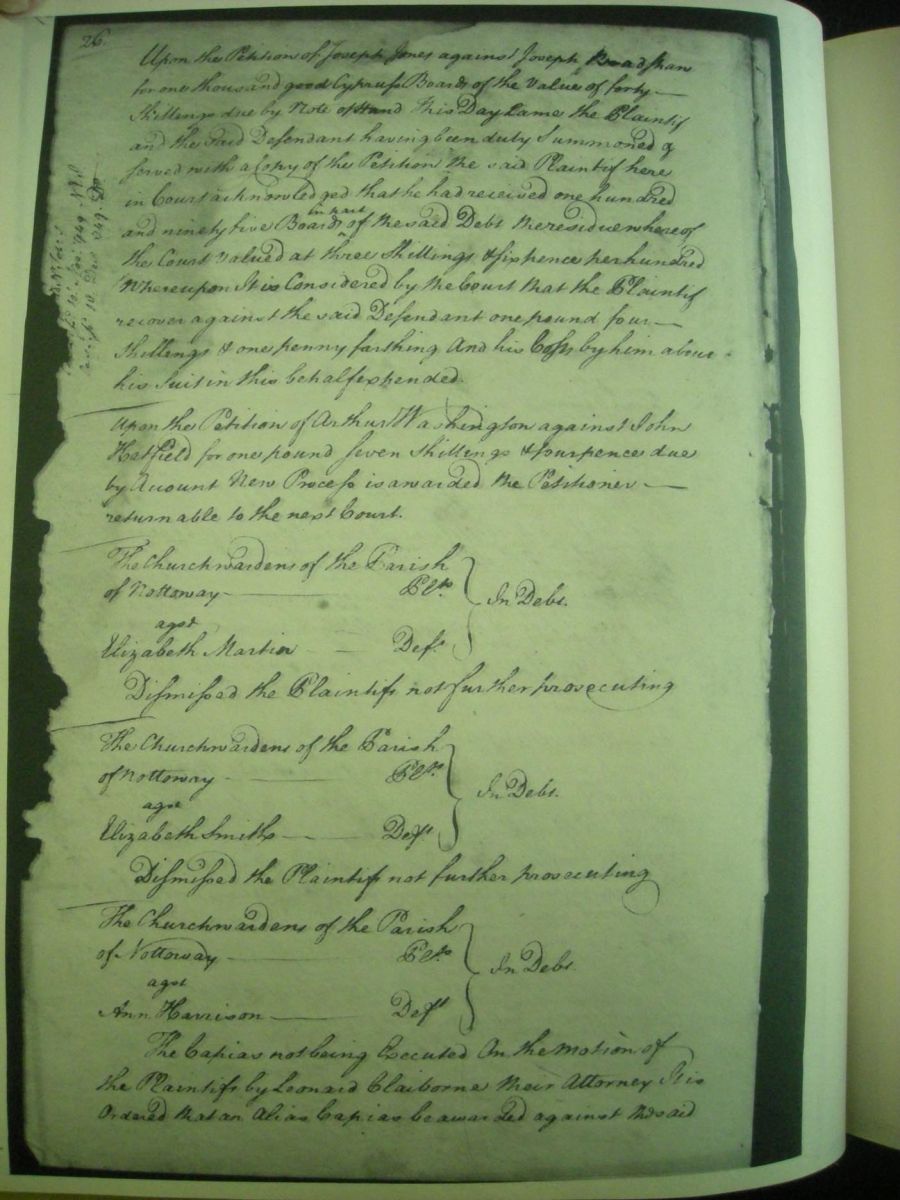 26.
Upon the Petition of Joseph Jones against Joseph Bradshaw
for one thousand good Cypruss Boards of the Value of forty
Shillings due by Note of Hand This Day Came the Plaintif
and the said Defendant having been duly Summoned &
served with a Copy of the Petition the said Plaintif here
in Court acknowledged that he had received one hundred
and ninety five Boards in part of the said Debt the residue whereof
the Court Valued at three Shillings & sixpence per hundred
Whereupon It is Considered by the Court that the Plaintif
recover against the said Defendant one pound four
Shillings & one penny farthing And his Costs by him about
his Suit in this behalf expended.
Upon the Petition of Arthur Washington against John
Hatfield for one pound seven Shillings & fourpence due
by Account New Process is awarded the Petitioner
returnable to the next Court.
The Churchwardens of the Parish
of Nottoway Plts.
agst
Elizabeth Martin Deft.
In Debt.
Dismissed the Plaintifs not further prosecuting
The Churchwardens of the Parish
of Nottoway Plts.
agst
Elizabeth Smith Deft
In Debt.
Dismissed the Plaintifs not further prosecuting
The Churchwardens of the Parish
of Nottoway Plts.
agst
Ann Harrison Deft
In Debt
The Capias not being Executed On the motion of
the Plaintifs by Leonard Claiborne their Attorney It is
Ordered that an Alias Capias be awarded against the said